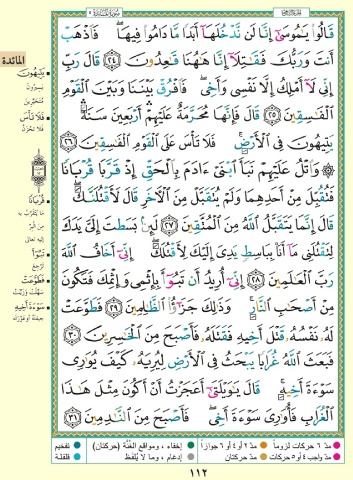 قَالُوا۟ يَـٰمُوسَىٰٓ إِنَّا لَن نَّدْخُلَهَآ أَبَدًا مَّا دَامُوا۟ فِيهَا ۖ فَٱذْهَبْ
أَنتَ وَرَبُّكَ فَقَـٰتِلَآ إِنَّا هَـٰهُنَا قَـٰعِدُونَ ٢٤ قَالَ رَبِّ
إِنِّى لَآ أَمْلِكُ إِلَّا نَفْسِى وَأَخِى ۖ فَٱفْرُقْ بَيْنَنَا وَبَيْنَ ٱلْقَوْمِ
ٱلْفَـٰسِقِينَ ٢٥ قَالَ فَإِنَّهَا مُحَرَّمَةٌ عَلَيْهِمْ ۛ أَرْبَعِينَ سَنَةً ۛ
يَتِيهُونَ فِى ٱلْأَرْضِ ۚ فَلَا تَأْسَ عَلَى ٱلْقَوْمِ ٱلْفَـٰسِقِينَ ٢٦
۞ وَٱتْلُ عَلَيْهِمْ نَبَأَ ٱبْنَىْ ءَادَمَ بِٱلْحَقِّ إِذْ قَرَّبَا قُرْبَانًا
فَتُقُبِّلَ مِنْ أَحَدِهِمَا وَلَمْ يُتَقَبَّلْ مِنَ ٱلْـَٔاخَرِ قَالَ لَأَقْتُلَنَّكَ ۖ
قَالَ إِنَّمَا يَتَقَبَّلُ ٱللَّهُ مِنَ ٱلْمُتَّقِينَ ٢٧ لَئِنۢ بَسَطتَ إِلَىَّ يَدَكَ
لِتَقْتُلَنِى مَآ أَنَا۠ بِبَاسِطٍ يَدِىَ إِلَيْكَ لِأَقْتُلَكَ ۖ إِنِّىٓ أَخَافُ ٱللَّهَ
رَبَّ ٱلْعَـٰلَمِينَ ٢٨ إِنِّىٓ أُرِيدُ أَن تَبُوٓأَ بِإِثْمِى وَإِثْمِكَ فَتَكُونَ
مِنْ أَصْحَـٰبِ ٱلنَّارِ ۚ وَذَٰلِكَ جَزَٰٓؤُا۟ ٱلظَّـٰلِمِينَ ٢٩ فَطَوَّعَتْ
لَهُۥ نَفْسُهُۥ قَتْلَ أَخِيهِ فَقَتَلَهُۥ فَأَصْبَحَ مِنَ ٱلْخَـٰسِرِينَ ٣٠
فَبَعَثَ ٱللَّهُ غُرَابًا يَبْحَثُ فِى ٱلْأَرْضِ لِيُرِيَهُۥ كَيْفَ يُوَٰرِى
سَوْءَةَ أَخِيهِ ۚ قَالَ يَـٰوَيْلَتَىٰٓ أَعَجَزْتُ أَنْ أَكُونَ مِثْلَ هَـٰذَا
ٱلْغُرَابِ فَأُوَٰرِىَ سَوْءَةَ أَخِى ۖ فَأَصْبَحَ مِنَ ٱلنَّـٰدِمِينَ ٣١
المائدة
يَتِيهُونَ
يَسِيرُونَ
مُتَحَيِّرِينَ
فَلَا تَأْسَ
فَلَا تَحْزَنْ
قُرْبَانًا
مَا يُتَقَرَّبُ بِهِ
مِنَ الْبِرِّ
إِلَيْهِ تعالى
تَبُوٓأَ
تَرْجِعَ
فَطَوَّعَتْ
سَهَّلَتْ وَزَيَّنَتْ
سَوْءَةَ أَخِيهِ
جِيفَتَهُ أَوْ عَوْرَتَهُ
مدّ ٦ حركات لزوماً
مدّ ٢ أو ٤ أو ٦ جوازاً
إخفاء، ومواقع الغُنَّة (حركتان)
تفخيم
مدّ واجب ٤ أو ٥ حركات
مدّ حركتان
إدغام، وما لا يُلفَظ
قلقلة
١١٢